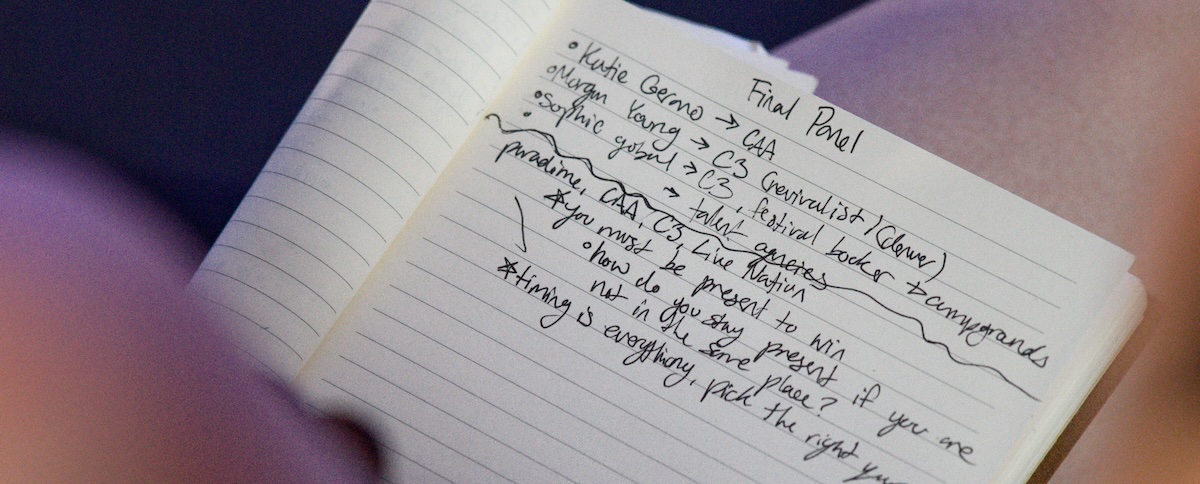 Final Panel
• Katie Germo → CAA
• Morgan Young → C3 (revivalist) (denver)
• Sophie gobal → C3, festival booker → campgrounds
• → talent agencies
paradime, CAA, C3, Live Nation
* you must be present to win
• how do you stay present if you are
not in the same place?
* timing is everything, pick the right